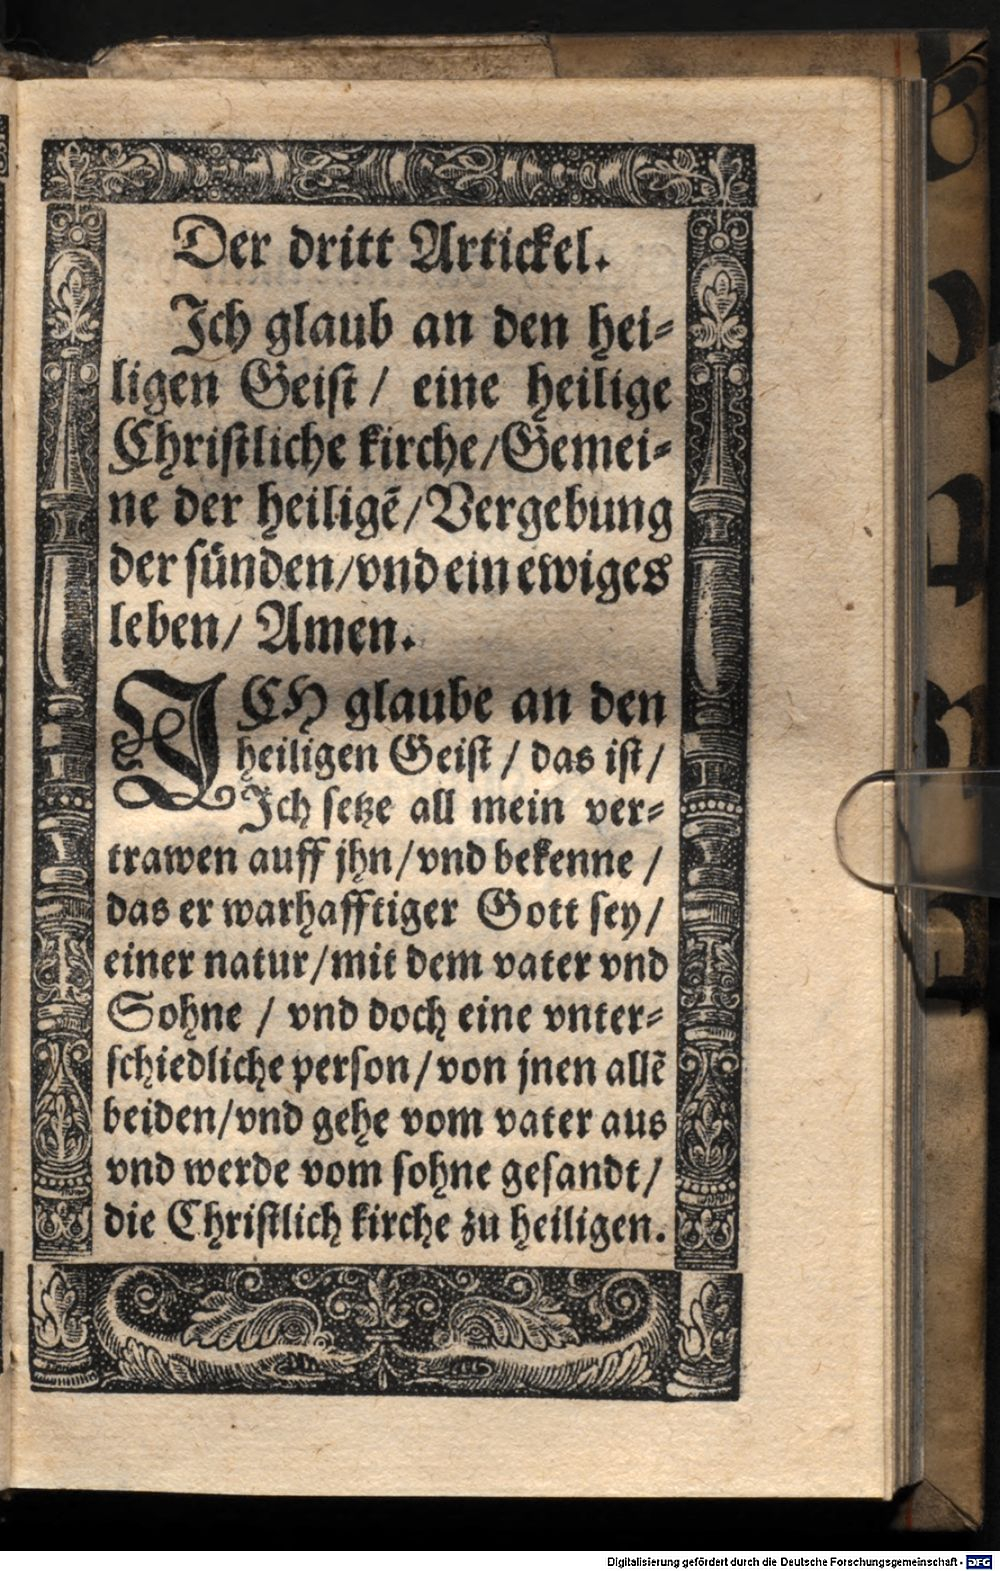 Der dritt Artickel.
Ich glaub an den hei-
ligen Geist / eine heilige
Christliche kirche/Gemei-
ne der heiligē/Vergebung
der sünden/vnd ein ewiges
leben/ Amen.
ICH glaube an den
heiligen Geist / das ist/
Ich setze all mein ver-
trawen auff jhn/vnd bekenne /
das er warhafftiger Gott sey/
einer natur/mit dem vater vnd
Sohne / vnd doch eine vnter-
schiedliche person/von jnen allē
beiden/vnd gehe vom vater aus
vnd werde vom sohne gesandt/
die Christlich kirche zu heiligen.
Digitalisierung gefördert durch die Deutsche Forschungsgemeinschaft - DFG